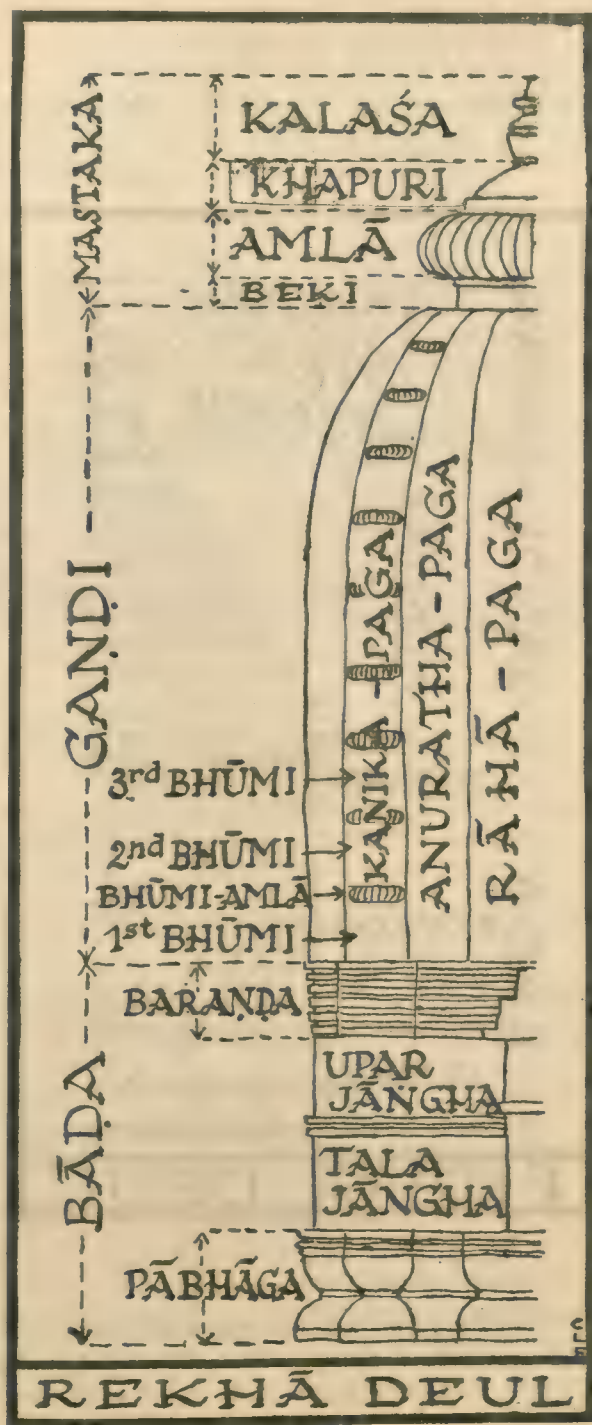 MASTAKA
KALAŚA
KHAPURI
AMLĀ
BEKI
GAṆḌI
KANIKA-PAGA
ANURATHA-PAGA
RĀHĀ-PAGA
3rd BHŪMI
2nd BHŪMI
BHŪMI-AMLĀ
1st BHŪMI
BĀḌA
BARAṆḌA
UPAR
JĀNGHA
TALA
JĀNGHA
PĀBHĀGA
REKHĀ DEUL